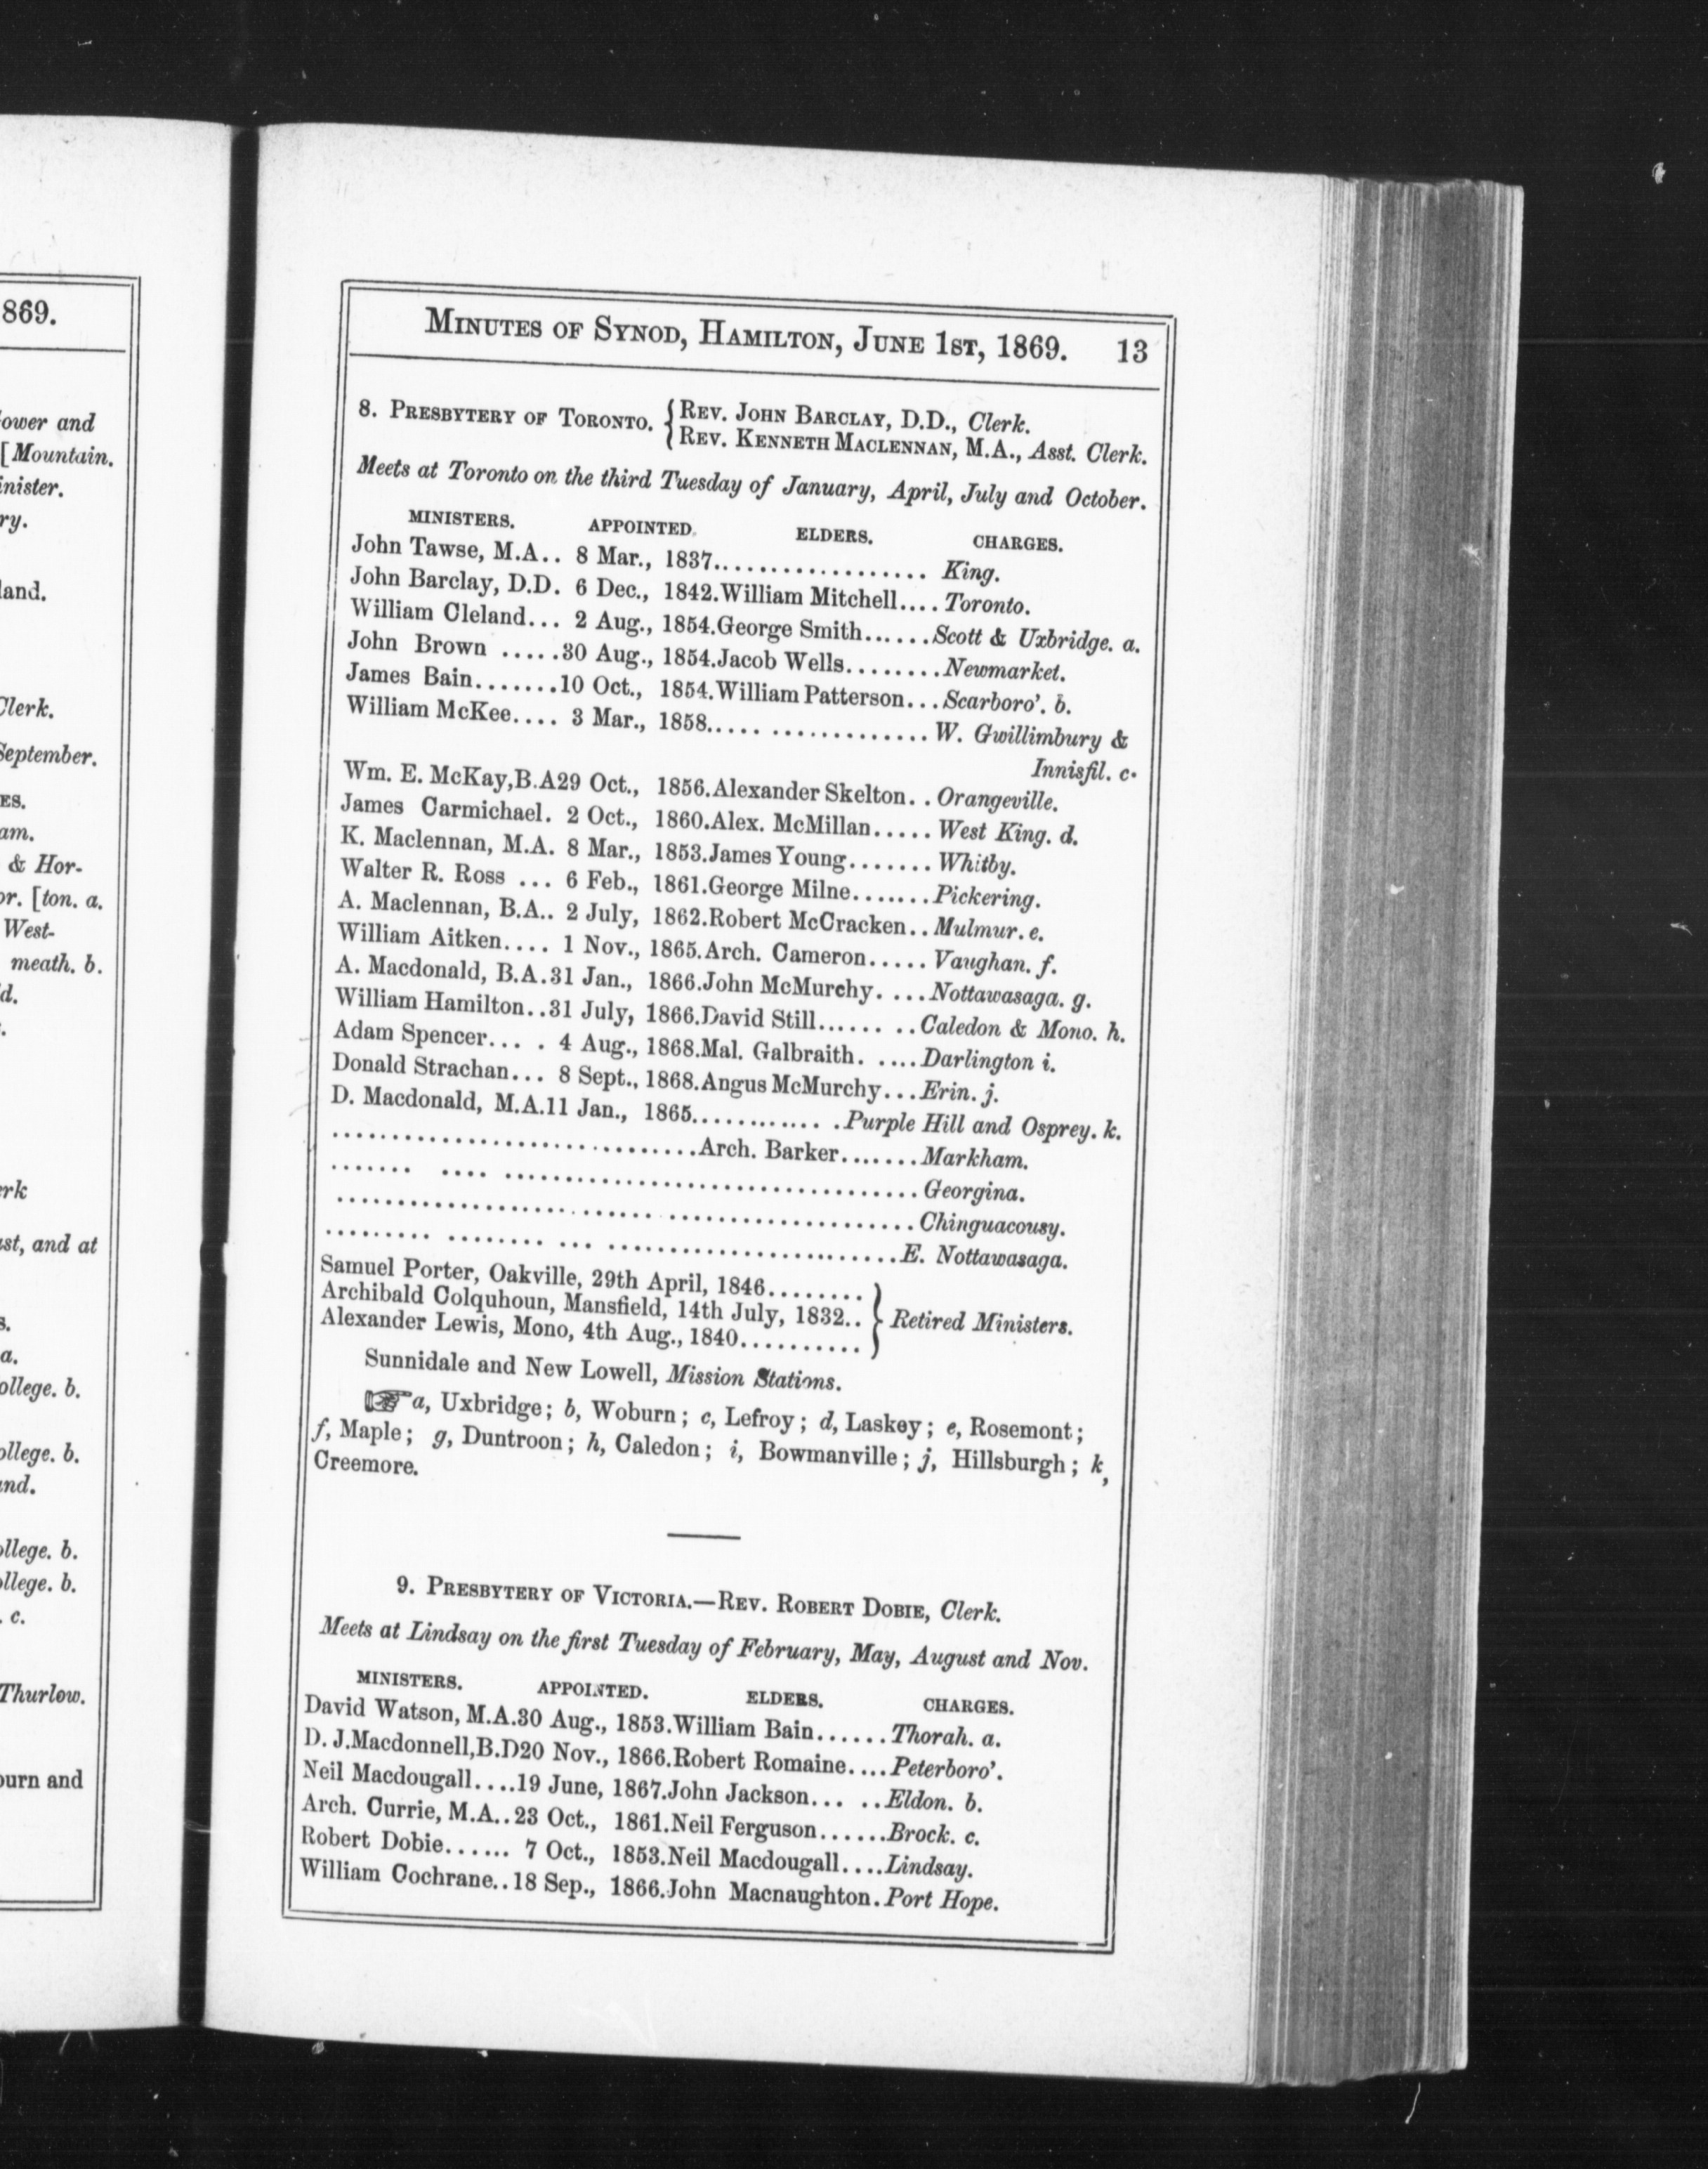 869.
ower and
[Mountain.
inister.
ry.
land.
Clerk.
September.
ES.
am.
& Hor-
or. [ton. a.
West-
meath. b.
d.
erk
ust, and at
s.
a.
ollege. b.
ollege. b.
and.
ollege. b.
ollege. b.
. c.
Thurlow.
ourn and
MINUTES OF SYNOD, HAMILTON, JUNE 1ST, 1869. 13
8. PRESBYTERY OF TORONTO. { REV. JOHN BARCLAY, D.D., Clerk.
REV. KENNETH MACLENNAN, M.A., Asst. Clerk.
Meets at Toronto on the third Tuesday of January, April, July and October.
MINISTERS. APPOINTED. ELDERS. CHARGES.
John Tawse, M.A.. 8 Mar., 1837.................. King.
John Barclay, D.D. 6 Dec., 1842.William Mitchell.... Toronto.
William Cleland... 2 Aug., 1854.George Smith......Scott & Uxbridge. a.
John Brown .....30 Aug., 1854.Jacob Wells........Newmarket.
James Bain.......10 Oct., 1854.William Patterson...Scarboro'. b.
William McKee.... 3 Mar., 1858..... ............. W. Gwillimbury &
Innisfil. c.
Wm. E. McKay,B.A29 Oct., 1856.Alexander Skelton.. Orangeville.
James Carmichael. 2 Oct., 1860.Alex. McMillan..... West King. d.
K. Maclennan, M.A. 8 Mar., 1853.James Young....... Whitby.
Walter R. Ross ... 6 Feb., 1861.George Milne.......Pickering.
A. Maclennan, B.A.. 2 July, 1862.Robert McCracken.. Mulmur. e.
William Aitken.... 1 Nov., 1865.Arch. Cameron..... Vaughan. f.
A. Macdonald, B.A.31 Jan., 1866.John McMurchy. ...Nottawasaga. g.
William Hamilton..31 July, 1866.David Still...... ..Caledon & Mono. h.
Adam Spencer... . 4 Aug., 1868.Mal. Galbraith. ....Darlington i.
Donald Strachan... 8 Sept., 1868.Angus McMurchy...Erin. j.
D. Macdonald, M.A.11 Jan., 1865............ .Purple Hill and Osprey. k.
....................................Arch. Barker.......Markham.
....... .... .......................................Georgina.
...................... ....... ........................Chinguacousy.
......... ........ ... ............................E. Nottawasaga.
Samuel Porter, Oakville, 29th April, 1846.........
Archibald Colquhoun, Mansfield, 14th July, 1832.. } Retired Ministers.
Alexander Lewis, Mono, 4th Aug., 1840..........
Sunnidale and New Lowell, Mission Stations.
☞ a, Uxbridge; b, Woburn; c, Lefroy; d, Laskey; e, Rosemont;
f, Maple; g, Duntroon; h, Caledon; i, Bowmanville; j, Hillsburgh; k,
Creemore.
9. PRESBYTERY OF VICTORIA.—REV. ROBERT DOBIE, Clerk.
Meets at Lindsay on the first Tuesday of February, May, August and Nov.
MINISTERS. APPOINTED. ELDERS. CHARGES.
David Watson, M.A.30 Aug., 1853.William Bain......Thorah. a.
D. J.Macdonnell,B.D20 Nov., 1866.Robert Romaine....Peterboro'.
Neil Macdougall....19 June, 1867.John Jackson... ..Eldon. b.
Arch. Currie, M.A..23 Oct., 1861.Neil Ferguson......Brock. c.
Robert Dobie...... 7 Oct., 1853.Neil Macdougall....Lindsay.
William Cochrane..18 Sep., 1866.John Macnaughton.Port Hope.